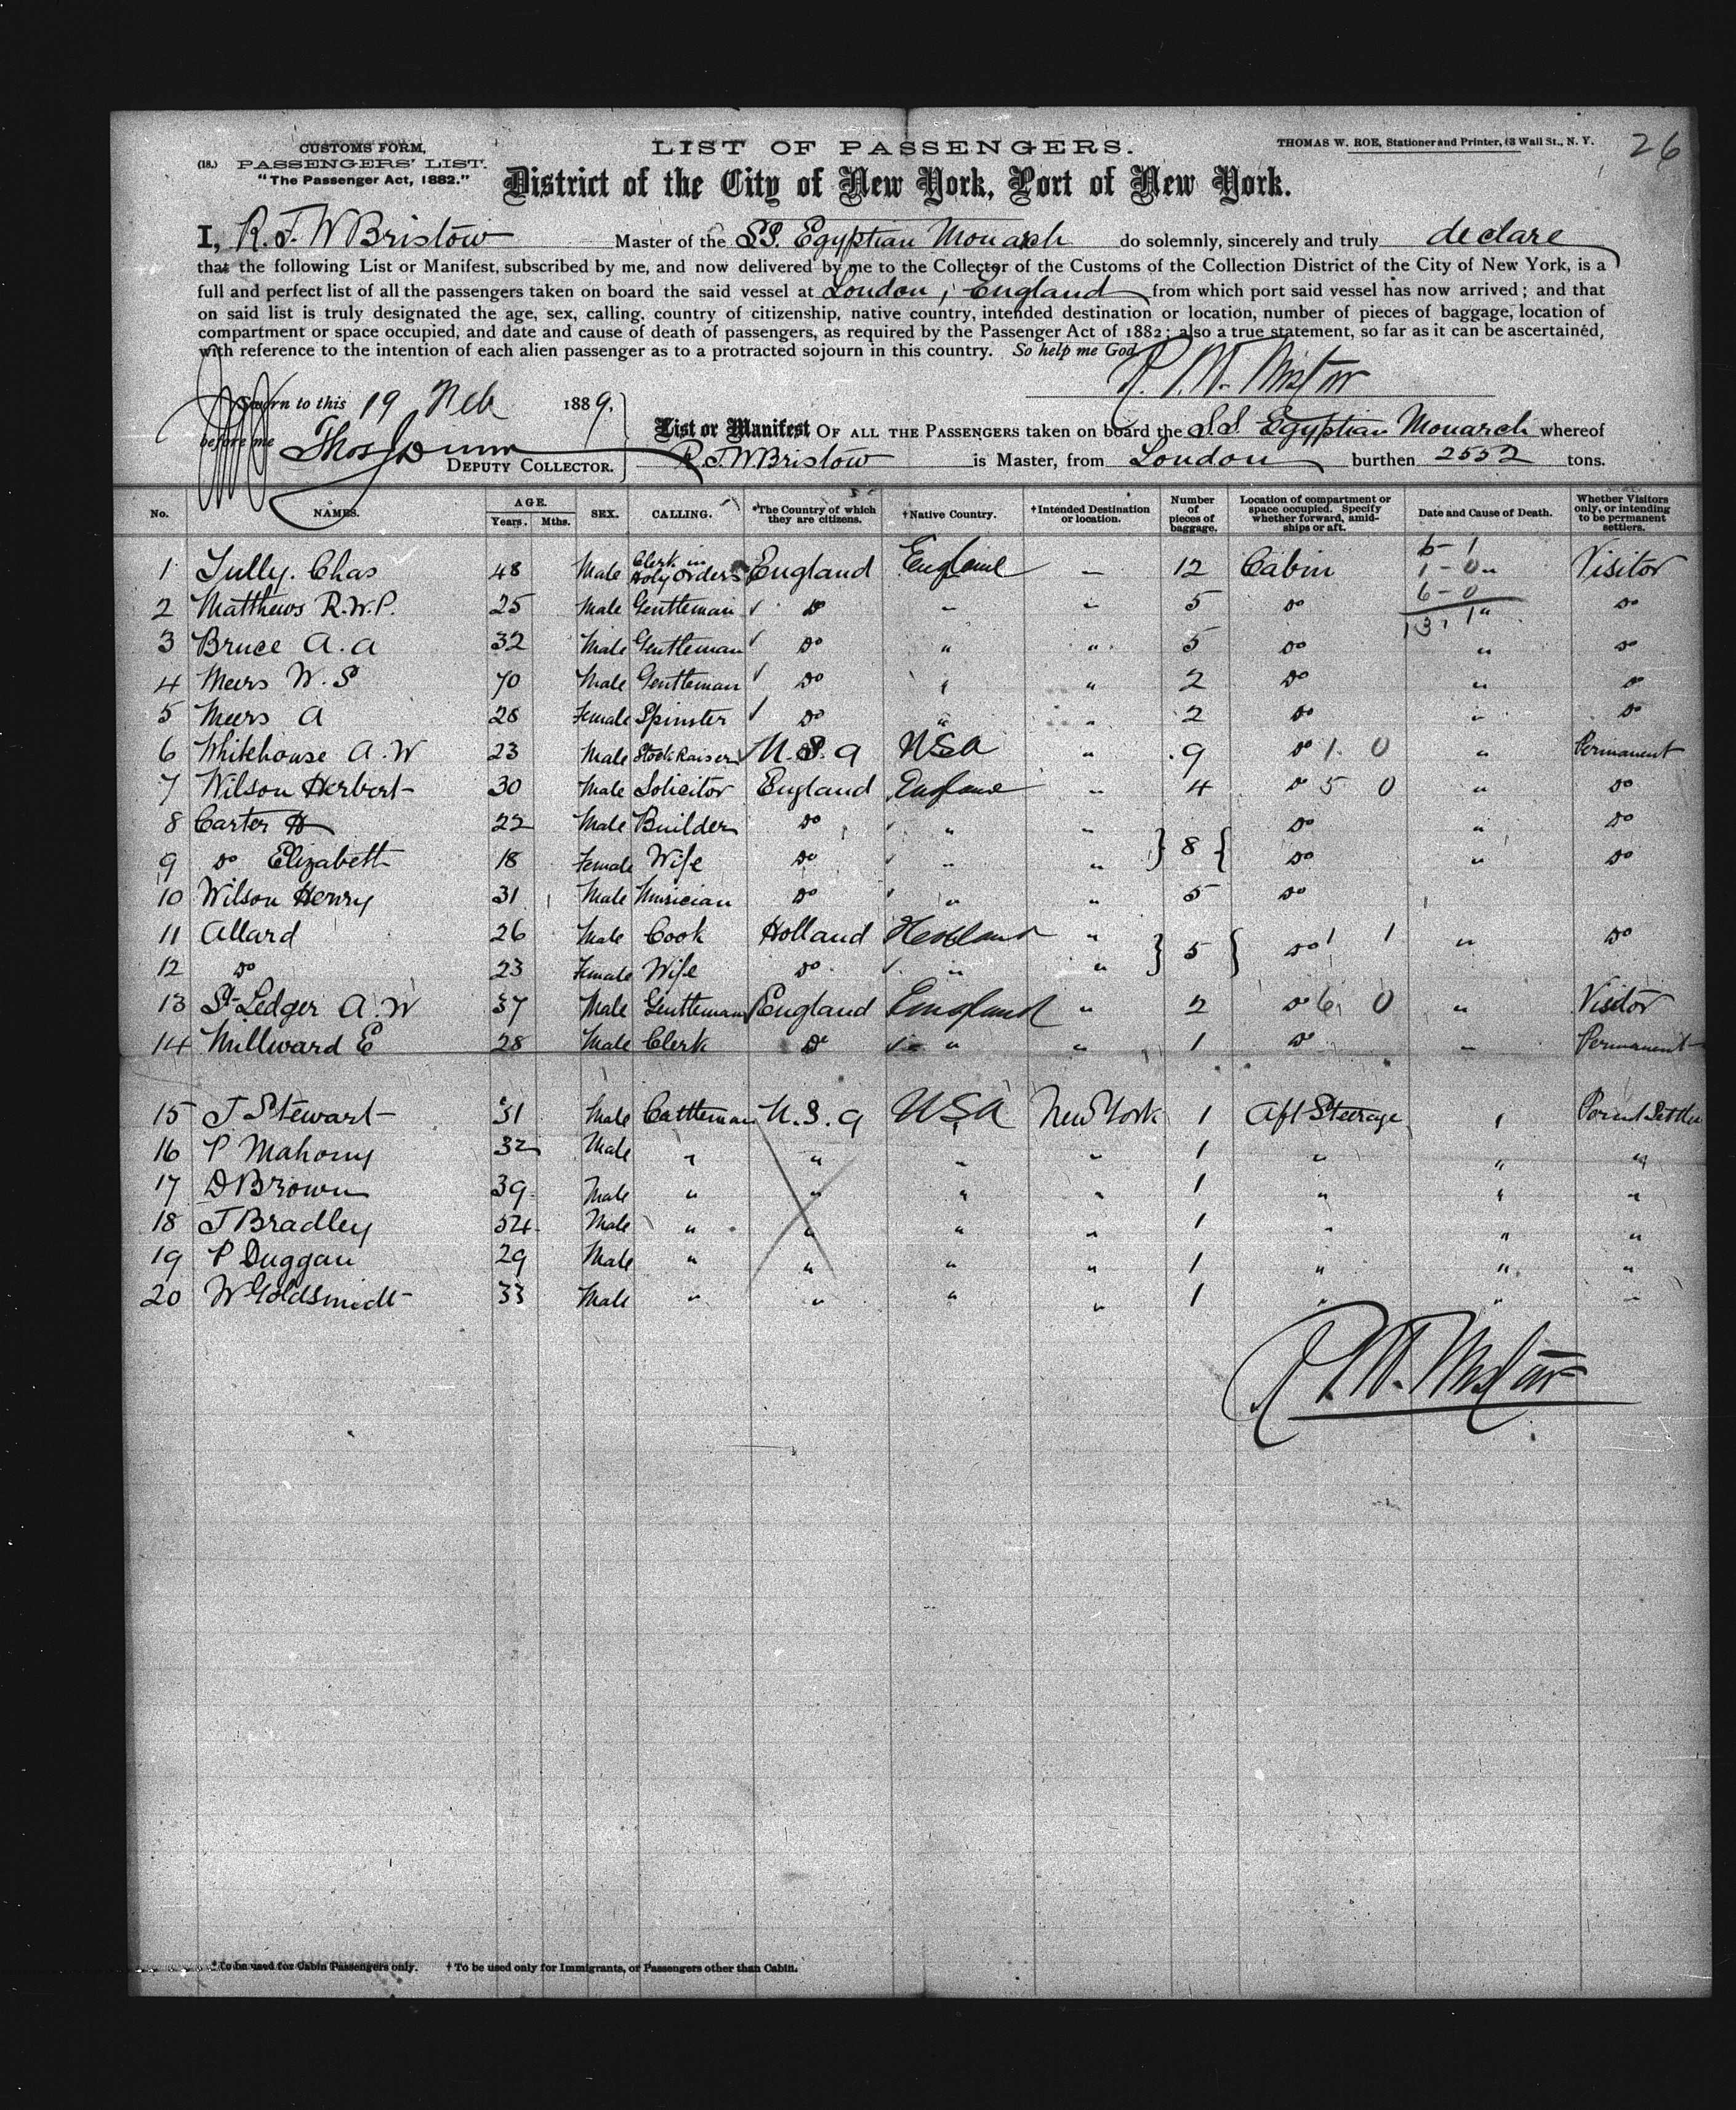 CUSTOMS FORM,
(18.) PASSENGERS' LIST.
"The Passenger Act, 1882."
LIST OF PASSENGERS.
THOMAS W. ROE, Stationer and Printer, 63 Wall St., N. Y.
26
District of the City of New York, Port of New York.
I, R. F. W Bristow Master of the SS. Egyptian Monarch do solemnly, sincerely and truly declare
that the following List or Manifest, subscribed by me, and now delivered by me to the Collector of the Customs of the Collection District of the City of New York, is a
full and perfect list of all the passengers taken on board the said vessel at London, England from which port said vessel has now arrived; and that
on said list is truly designated the age, sex, calling, country of citizenship, native country, intended destination or location, number of pieces of baggage, location of
compartment or space occupied, and date and cause of death of passengers, as required by the Passenger Act of 1882; also a true statement, so far as it can be ascertained,
with reference to the intention of each alien passenger as to a protracted sojourn in this country. So help me God.
Sworn to this 19 Feb 1889.
before me Thos J Dunn
DEPUTY COLLECTOR.
List or Manifest OF ALL THE PASSENGERS taken on board the S.S. Egyptian Monarch whereof
R. F. W Bristow is Master, from London burthen 2552 tons.
No. NAMES. AGE. Years. Mths. SEX. CALLING. *The Country of which they are citizens. †Native Country. †Intended Destination or location. Number of pieces of baggage. Location of compartment or space occupied. Specify whether forward, amidships or aft. Date and Cause of Death. Whether Visitors only, or intending to be permanent settlers.
1 Tully. Chas 48 Male Clerk in Holy Orders England England – 12 Cabin Visitor
2 Matthews R. W. P. 25 Male Gentleman do " " 5 do " do
3 Bruce A. A 32 Male Gentleman do " " 5 do " do
4 Meers W. S 70 Male Gentleman do " " 2 do " do
5 Meers A 28 Female Spinster do " " 2 do " do
6 Whitehouse A. W 23 Male Stock Raiser U. S. A USA " 9 do 1 0 " Permanent
7 Wilson Herbert 30 Male Solicitor England England " 4 do 5 0 " do
8 Carter H 22 Male Builder do " " } 8 { do " do
9 do Elizabeth 18 Female Wife do " " do " do
10 Wilson Henry 31 Male Musician do " " 5 do
11 Allard 26 Male Cook Holland Holland " } 5 { do 1 1 " do
12 do 23 Female Wife do " "
13 St Ledger A. W 37 Male Gentleman England England " 2 do 6 0 " Visitor
14 Millward E 28 Male Clerk do " " 1 do " Permanent
15 J Stewart 31 Male Cattleman U. S. A USA New York 1 Aft Steerage "
16 P Mahony 32 Male " " " " 1 " " "
17 D Brown 39 Male " " " " 1 " " "
18 J Bradley 34 Male " " " " 1 " " "
19 P Duggan 29 Male " " " " 1 " " "
20 W Goldsmidt 33 Male " " " " 1 " " "
* To be used for Cabin Passengers only. † To be used only for Immigrants, or Passengers other than Cabin.